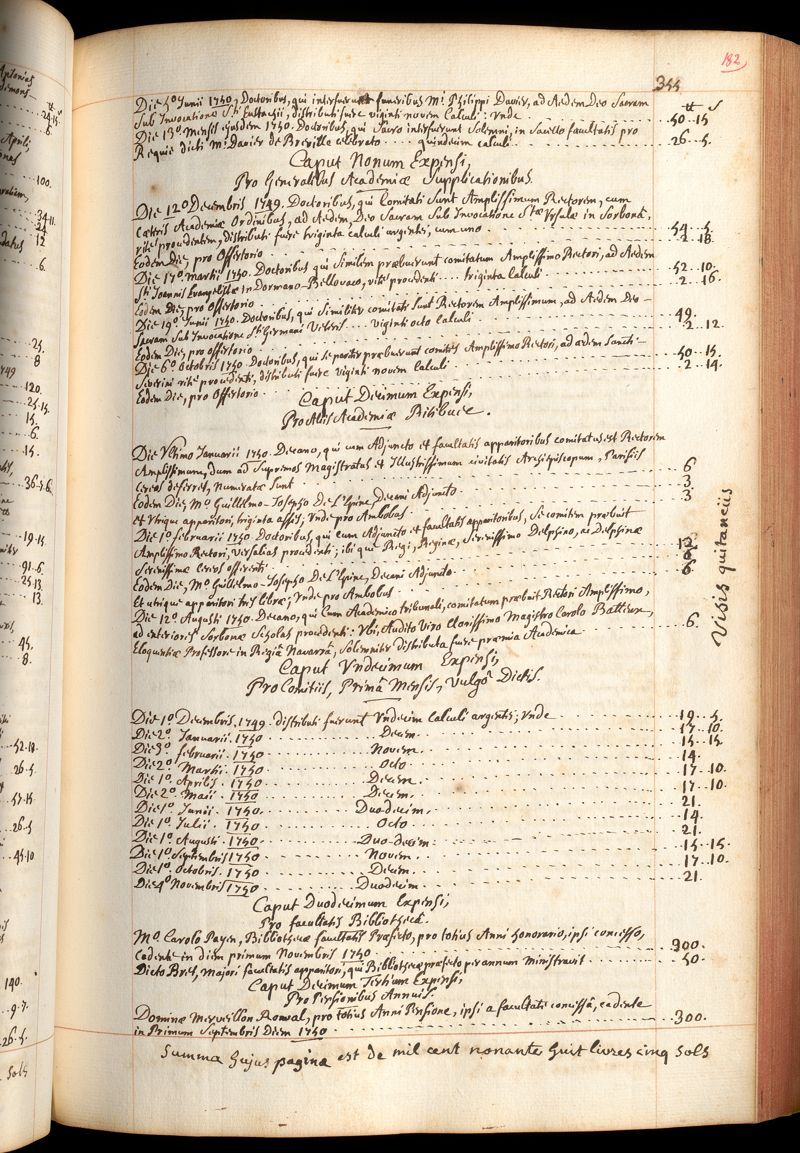 182
355
tt S
Die 5º Junii 1750, Doctoribus, qui interfuerunt funeribus Mi Philippi Davier, ad Aedem Deo Sacram
Sub Invocatione Sti Eustachii, distributi fuere viginti novem Calculi: Unde 50 15
Die 13º Mensis ejusdem 1750. Doctoribus, qui Sacro interfuerunt Solemni, in Sacello facultatis pro
Requie dicti Mi Davier de Breville celebrato quindecim calculi 26 5.
Caput Nonum Expensi,
Pro Generalibus Academiæ Supplicationibus.
Die 12º Decembris 1749. Doctoribus, qui Comitati Sunt Amplissimum Rectorem, cum
Cæteris Academiæ Ordinibus, ad Aedem, Deo Sacram Sub Invocatione Stæ Ursulæ in Sorbonâ,
rité procedentem, distributi fuere triginta calculi argentei, cum uno 54 5
Eodem Die, pro Offertorio 2 18
Die 17º Martii 1750. Doctoribus qui Similem præbuerunt comitatum Amplissimo Rectori, ad Aedem
Sti Joannis Evangelistæ in Dormano-Bellovaco, rité procedenti triginta Calculi 52 10
Eodem Die, pro Offertorio 2 16
Die 19º Junii 1750. Doctoribus, qui Similiter comitati Sunt Rectorem Amplissimum, ad Aedem Deo-
Sacram Sub Invocatione Sti Germani Veteris viginti octo calculi 49.
Eodem Die, pro Offertorio 2 12
Die 6º Octobris 1750. Doctoribus, qui Se pariter præbuerunt comites Amplissimo Rectori, ad ædem Sancti-
Severini rité procedenti, distributi fuere viginti novem Calculi 50 15.
Eodem Die, pro Offertorio 2 14
Caput Decimum Expensi,
Pro Aliis Academiæ Ritibus.
Die Ultimo Januarii 1750. Decano, qui cum Adjuncto et facultatis apparitoribus comitatus est Rectorem
Amplissimum, dum ad Supremos Magistratus et Illustrissimum civitatis Archiepiscopum, Parisiis
Cereos deferret, numeratæ Sunt 6
Eodem Die, Mº Guillelmo-Josepho De L'Epine, Decani Adjuncto 3
et Utrique apparitori, triginta asses; Unde pro Ambobus 3
Die 1º februarii 1750. Doctoribus, qui cum Adjuncto et facultatis apparitoribus, Se comitem præbuit
Amplissimo Rectori, Versalias procedenti; ibi que Regi, Reginæ, Serenissimo Delphino, ac Delphinæ
Serenissimæ Cereos offerenti 12
Eodem Die, Mº Guillelmo-Josepho De L'Epine, Decani Adjuncto 6
Et utrique apparitori tres libræ; Unde pro Ambobus 6
Die 12º Augusti 1750. Decano, qui Cum Academico tribunali, comitatum præbuit Rectori Amplissimo,
ad exteriores Sorbonæ Scholas procedenti: Ubi, Audito Viro Clarissimo Magistro Carolo Batteux,
Eloquentiæ Professore in Regiâ Navarrâ, Solemniter distributa fuere præmia Academica 6.
Visis quitanciis
Caput Undecimum Expensi,
Pro Comitiis, Primâ Mensis, Vulgò Dictis.
Die 1º Decembris. 1749. distributi fuerunt Undecim Calculi argentei; Unde 19 5.
Die 2º. Januarii. 1750 Decem 17 10.
Die 3º. februarii. 1750 Novem 15 15.
Die 2º. Martii. 1750 Octo 14.
Die 1º. Aprilis. 1750 Decem 17 10.
Die 2º. Maii. 1750 Decem 17 10.
Die 1º. Junii. 1750 Duodecim 21.
Die 1º. Julii. 1750 Octo 14.
Die 1º. Augusti. 1750 Duo-decim 21.
Die 1º Septembris 1750 Novem 15 15.
Die 1º. Octobris. 1750 Decem 17 10.
Die 4º Novembris 1750 Duodecim 21.
Caput Duodecimum Expensi;
Pro facultatis Bibliothecâ.
Mº. Carolo Payen, Bibliothecæ facultatis Præfecto, pro totius Anni honorario, ipsi concesso,
Cadente in diem primum Novembris 1750 300.
Dicto Bret, Majori facultatis apparitori, qui Bibliothecæ præfecto per annum Ministravit 50.
Caput Decimum Tertium Expensi,
Pro Pensionibus Annuis.
Dominæ Merveillon Ronval, pro totius Anni Pensione, ipsi a facultate concessâ, cadente
in Primum Septembris Diem 1750 300.
Summa hujus pagina est de mil cent nonante huit livres cinq Sols